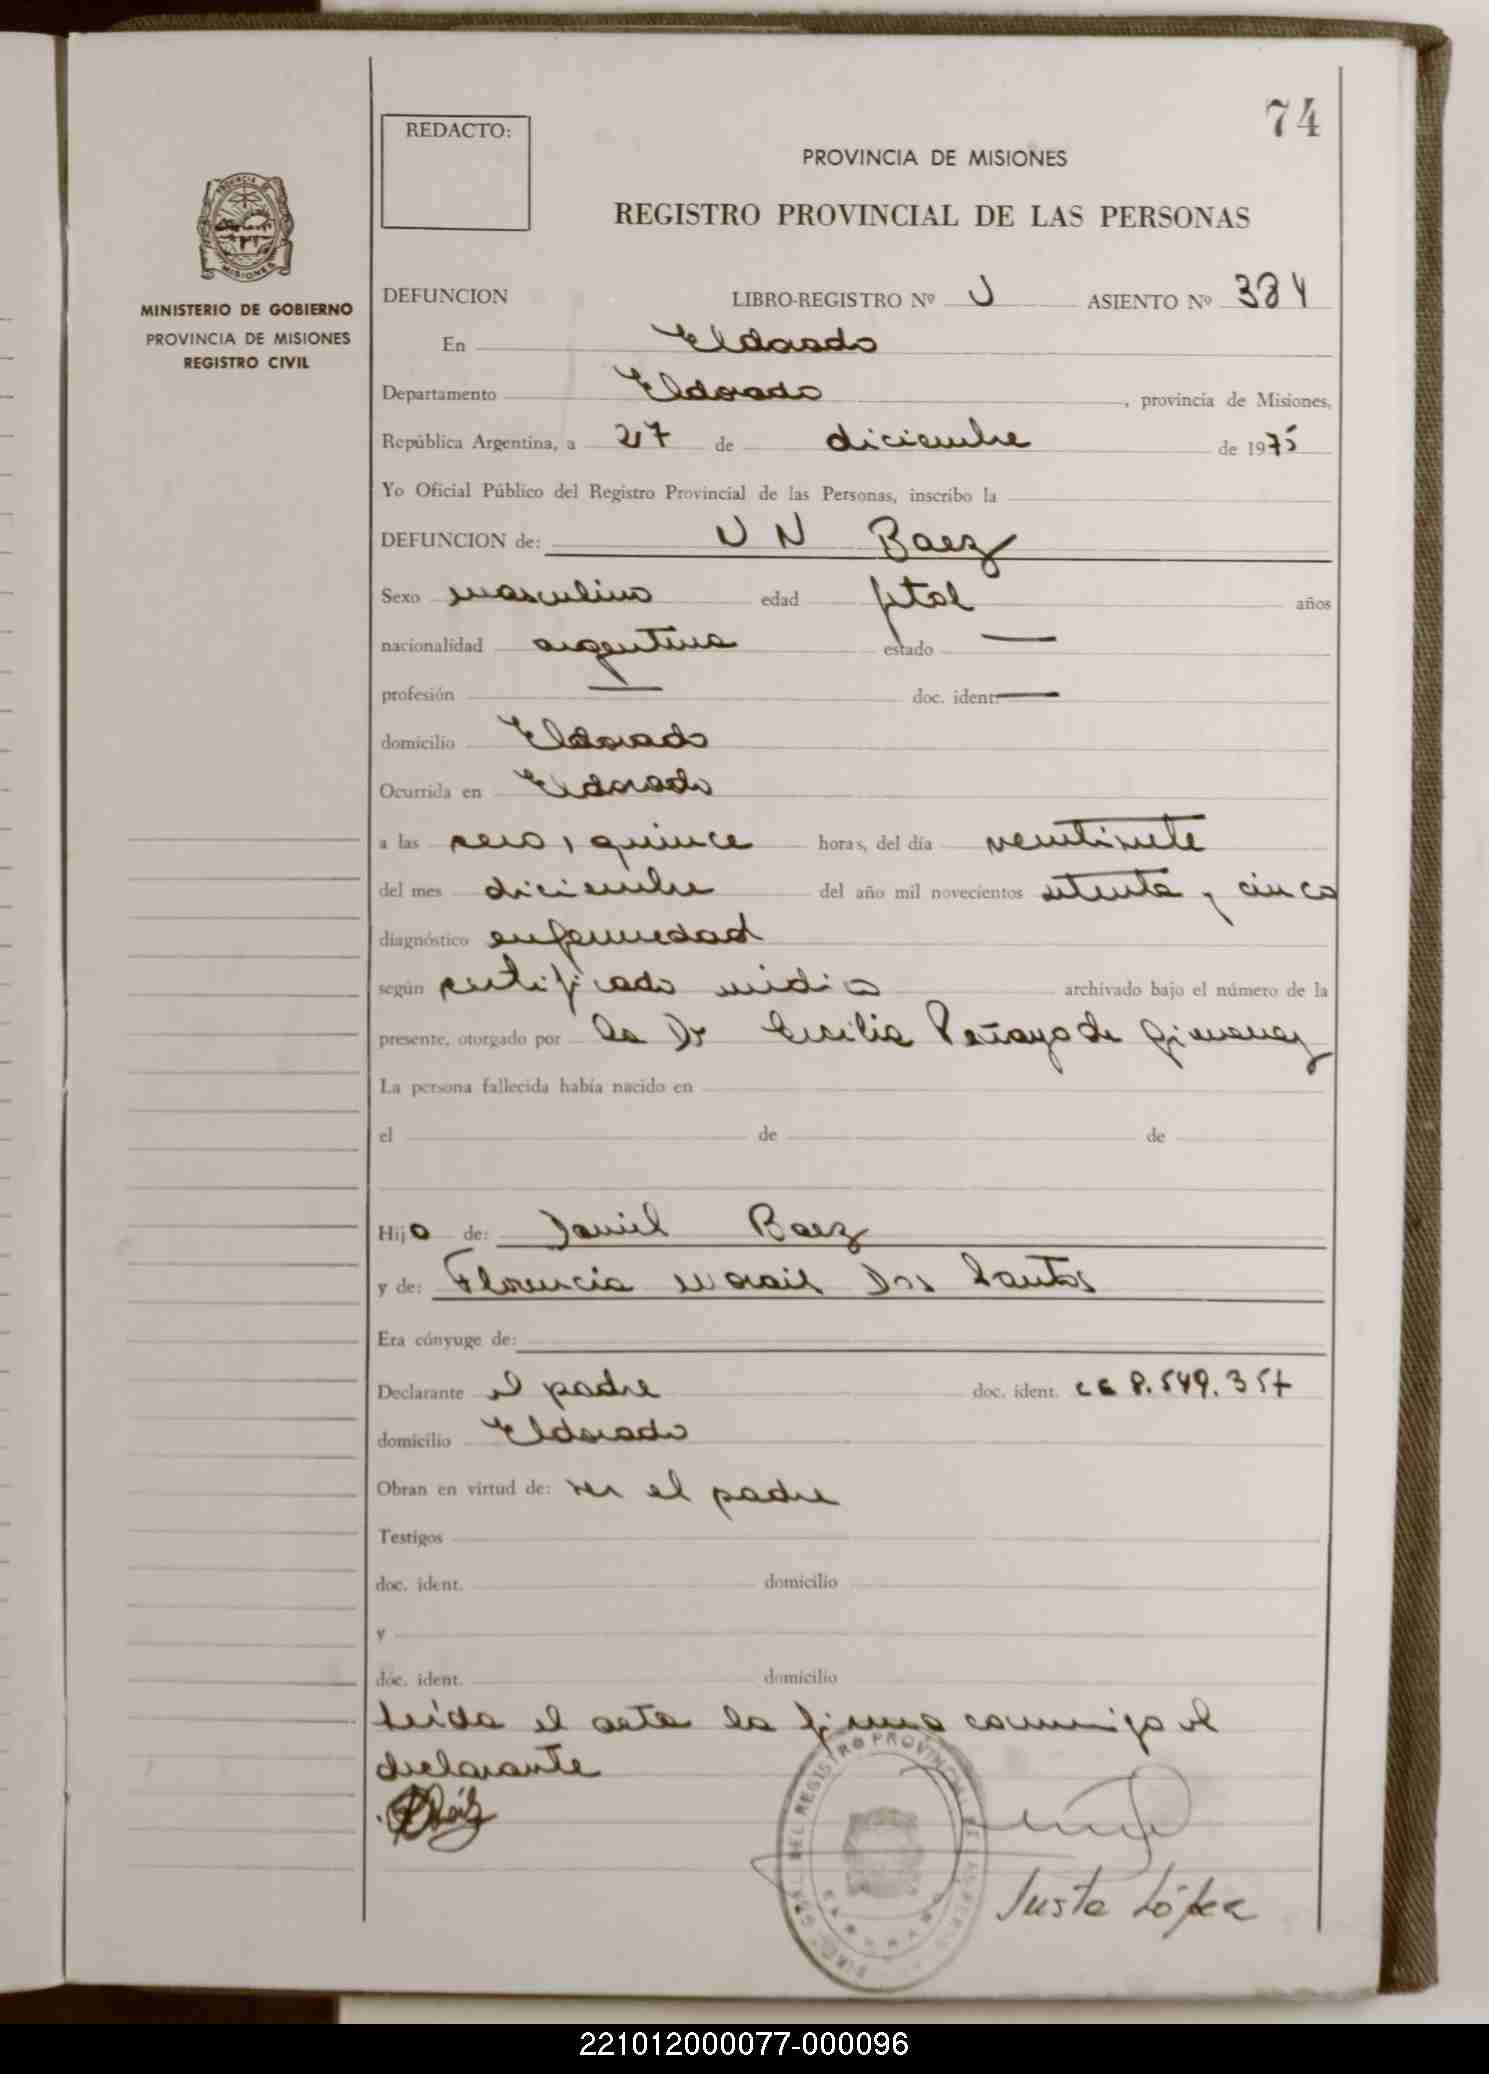 74
REDACTO:
PROVINCIA DE MISIONES
REGISTRO PROVINCIAL DE LAS PERSONAS
MINISTERIO DE GOBIERNO
PROVINCIA DE MISIONES
REGISTRO CIVIL
DEFUNCION LIBRO-REGISTRO Nº U ASIENTO Nº 384
En Eldorado
Departamento Eldorado, provincia de Misiones,
República Argentina, a 27 de diciembre de 1975
Yo Oficial Público del Registro Provincial de las Personas, inscribo la
DEFUNCION de: U N Baez
Sexo masculino edad fetal años
nacionalidad argentina estado —
profesión — doc. ident. —
domicilio Eldorado
Ocurrida en Eldorado
a las cero, quince horas, del día veintisiete
del mes diciembre del año mil novecientos setenta y cinco
diagnóstico enfermedad
según certificado médico archivado bajo el número de la
presente, otorgado por la Dr Peñayo de Gimenez
La persona fallecida había nacido en
el de de
Hijo de: Daniel Baez
y de: Florencia Morais Dos Santos
Era cónyuge de:
Declarante el padre doc. ident. 8.549.357
domicilio Eldorado
Obran en virtud de: ser el padre
Testigos
doc. ident. domicilio
y
doc. ident. domicilio
Leída el acta la firma conmigo el
declarante
Justa López
221012000077-000096